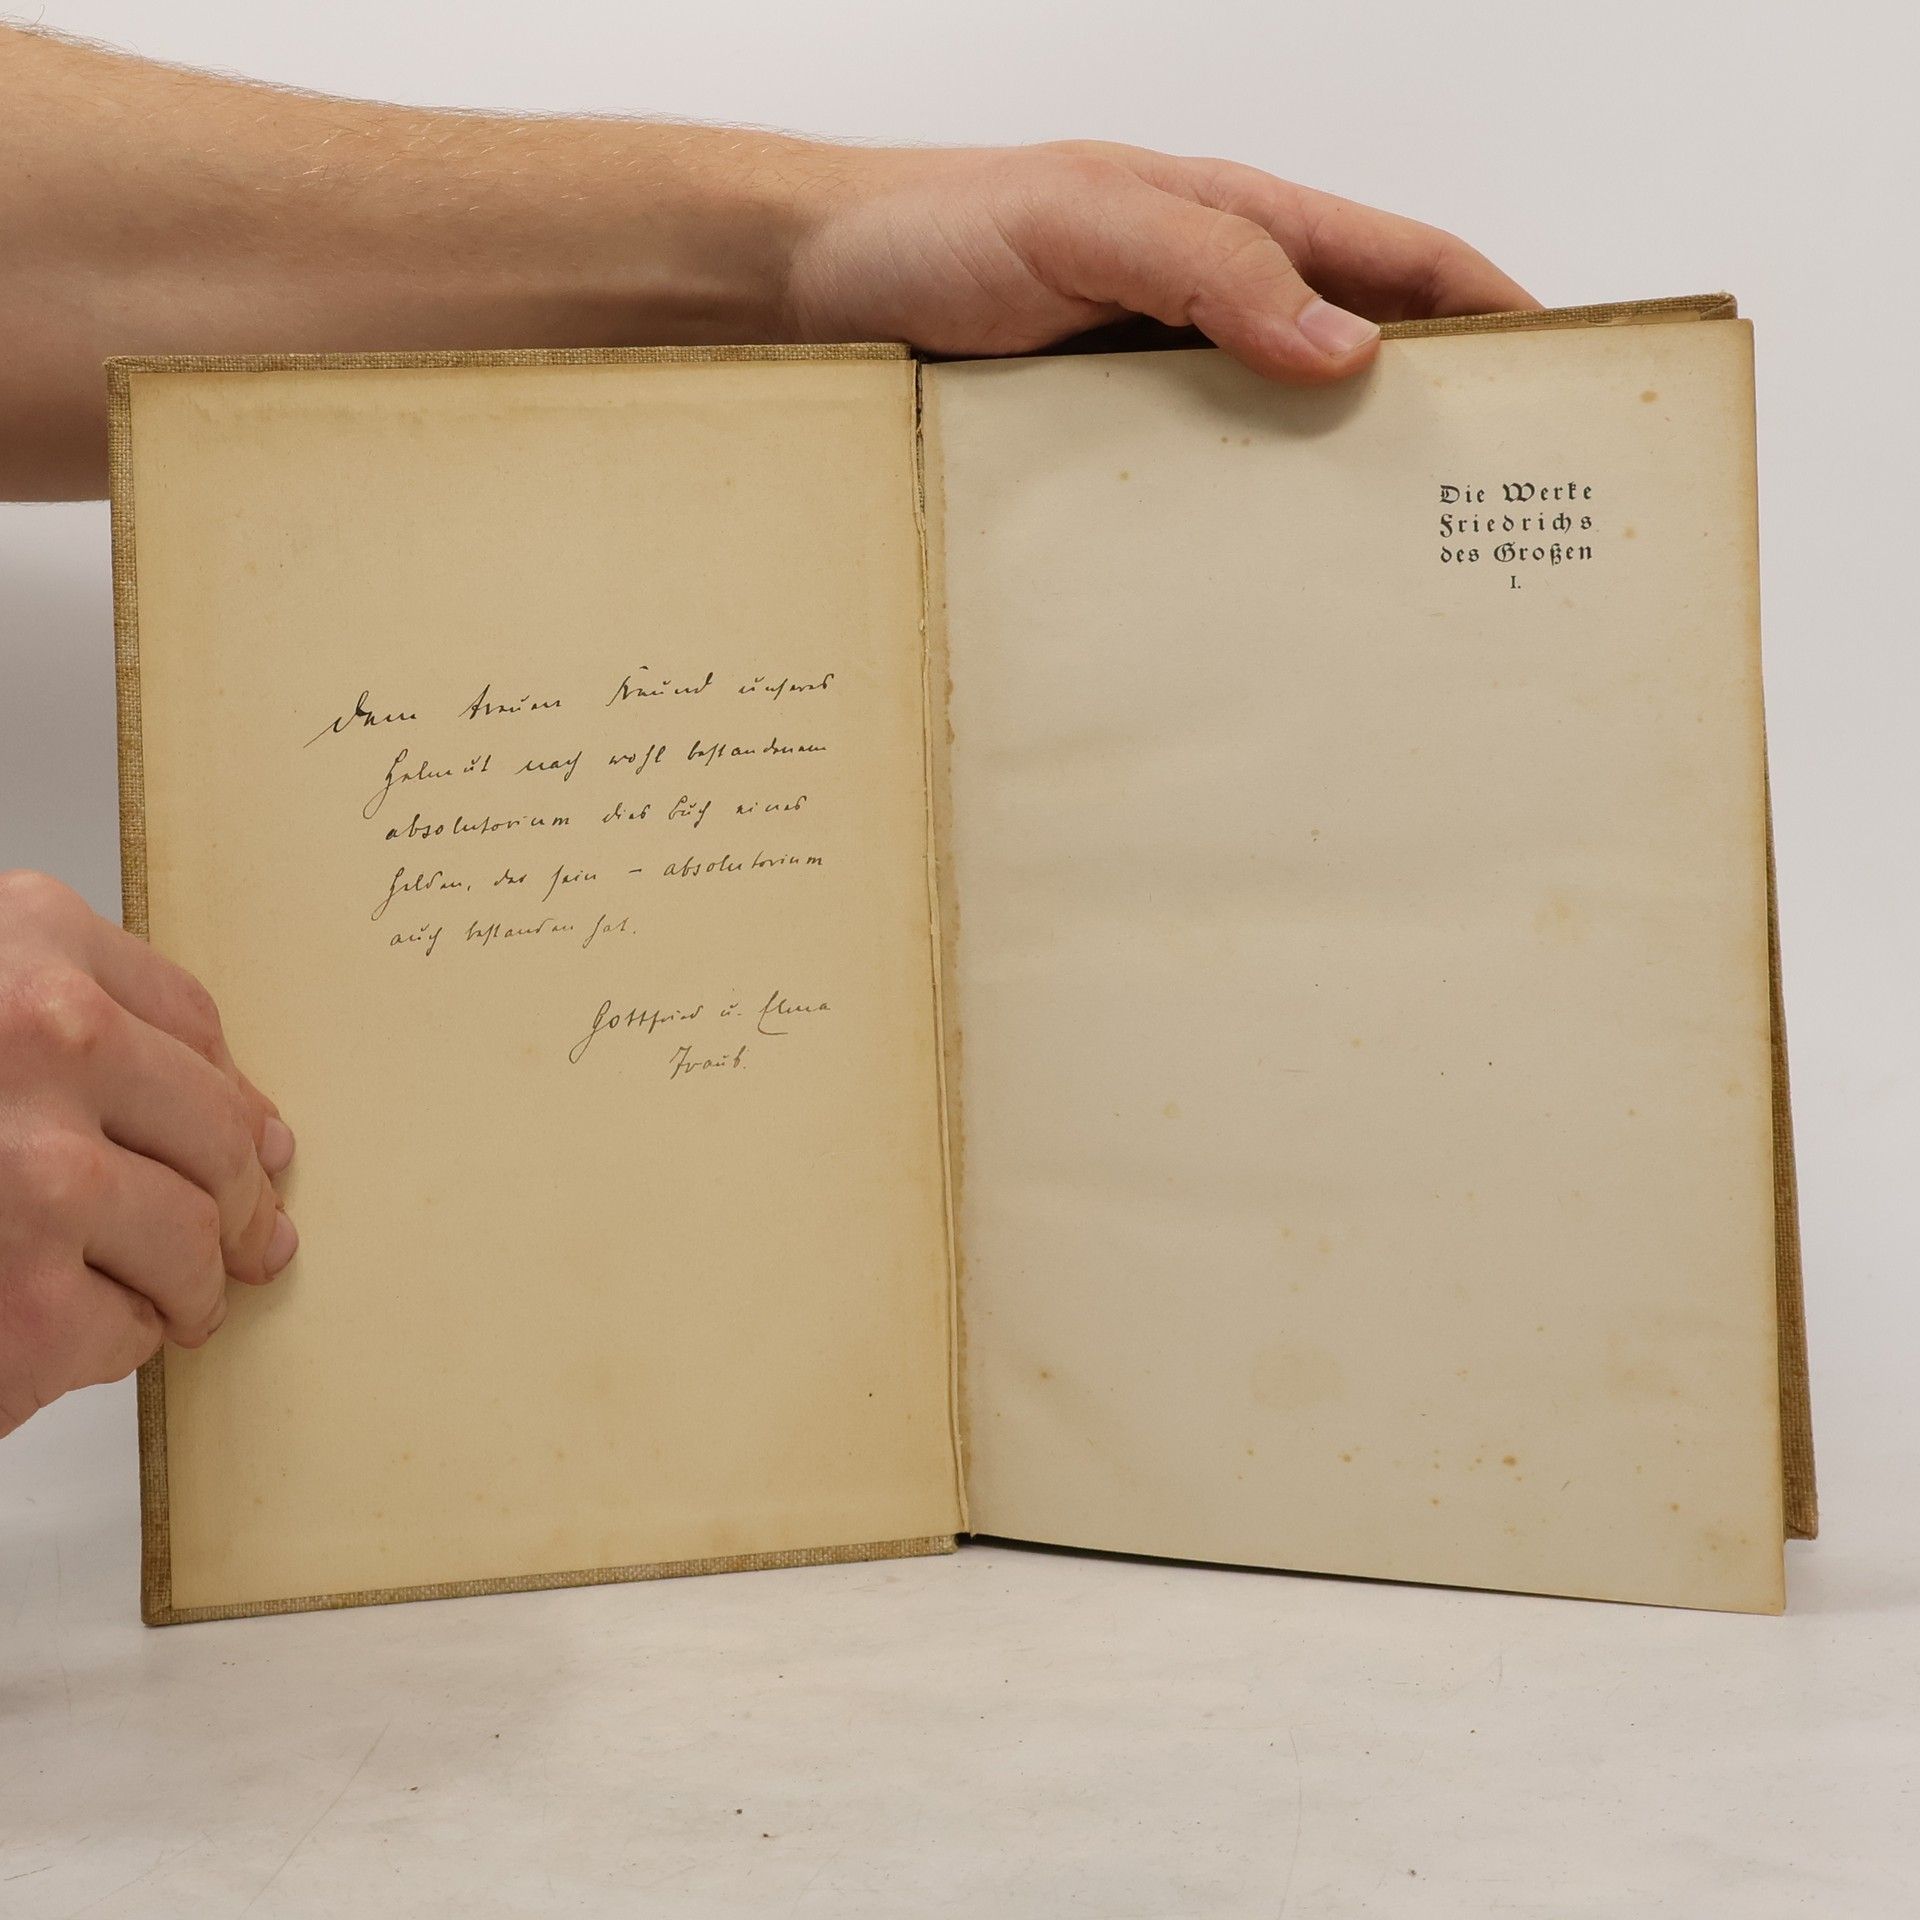 Dem treuen Freund unseres
Helmut nach wohl bestandenem
absolutorium dies Buch eines
Helden, der sein – absolutorium
auch bestanden hat.
Gottfried u. Elma
Traub.
Die Werke
Friedrichs
des Großen
I.